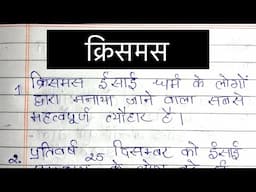 क्रिसमस
1. क्रिसमस ईसाई धर्म के लोगों
द्वारा मनाया जाने वाला सबसे
महत्वपूर्ण त्यौहार है।
2. प्रतिवर्ष 25 दिसम्बर को ईसाई